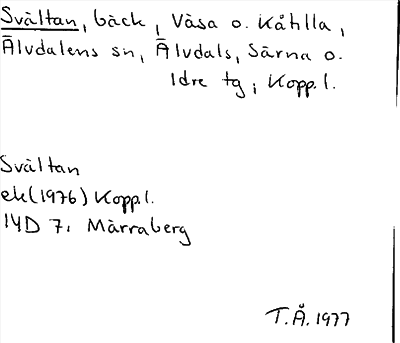 Svältan, bäck, Våsa o. Kåtilla,
Älvdalens sn, Älvdals, Särna o.
Idre tg; Kopp. l.
Svältan
ek (1976) Kopp. l.
14D 7i Märraberg
T.Å. 1977